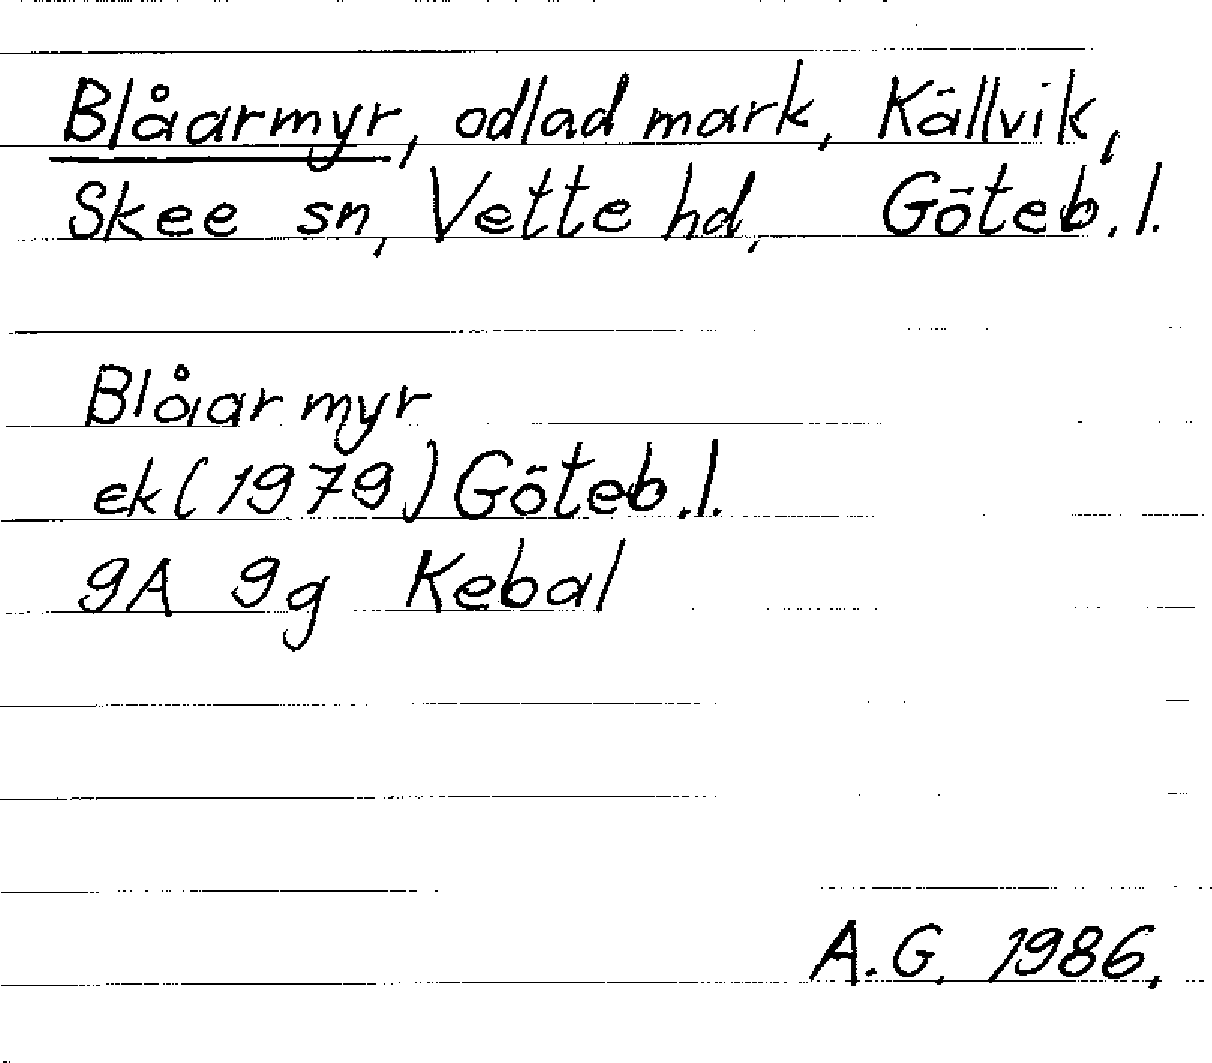 Blåarmyr, odlad mark, Källvik,
Skee sn, Vette hd, Göteb. l.
Blåarmyr
ek (1979) Göteb. l.
9A 9g Kebal
A.G. 1986.